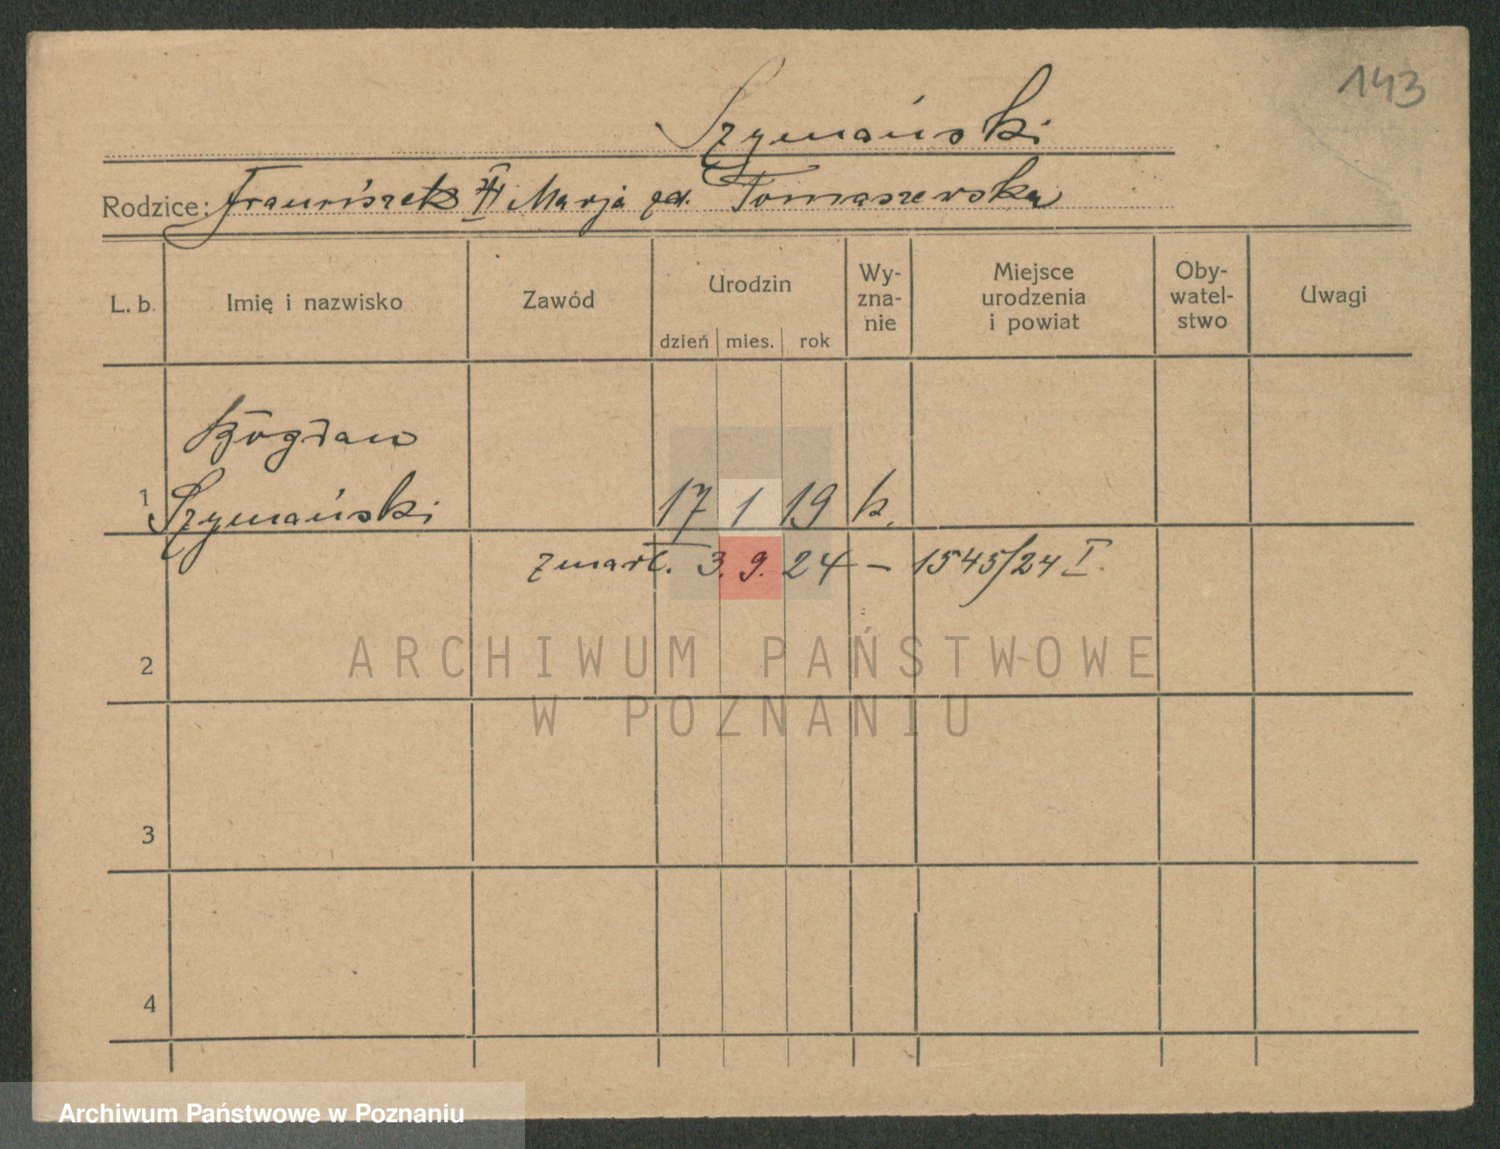 143
Szymański
Rodzice: Franciszek i Marja zd. Tomaszewska
L. b. Imię i nazwisko Zawód Urodzin dzień mies. rok Wy-zna-nie Miejsce urodzenia i powiat Oby-watel-stwo Uwagi
Bogdan
1 Szymański 17 1 19 k.
zmarł. 3. 9. 24 – 1545/24 I.
2
ARCHIWUM PAŃSTWOWE
W POZNANIU
3
4
Archiwum Państwowe w Poznaniu